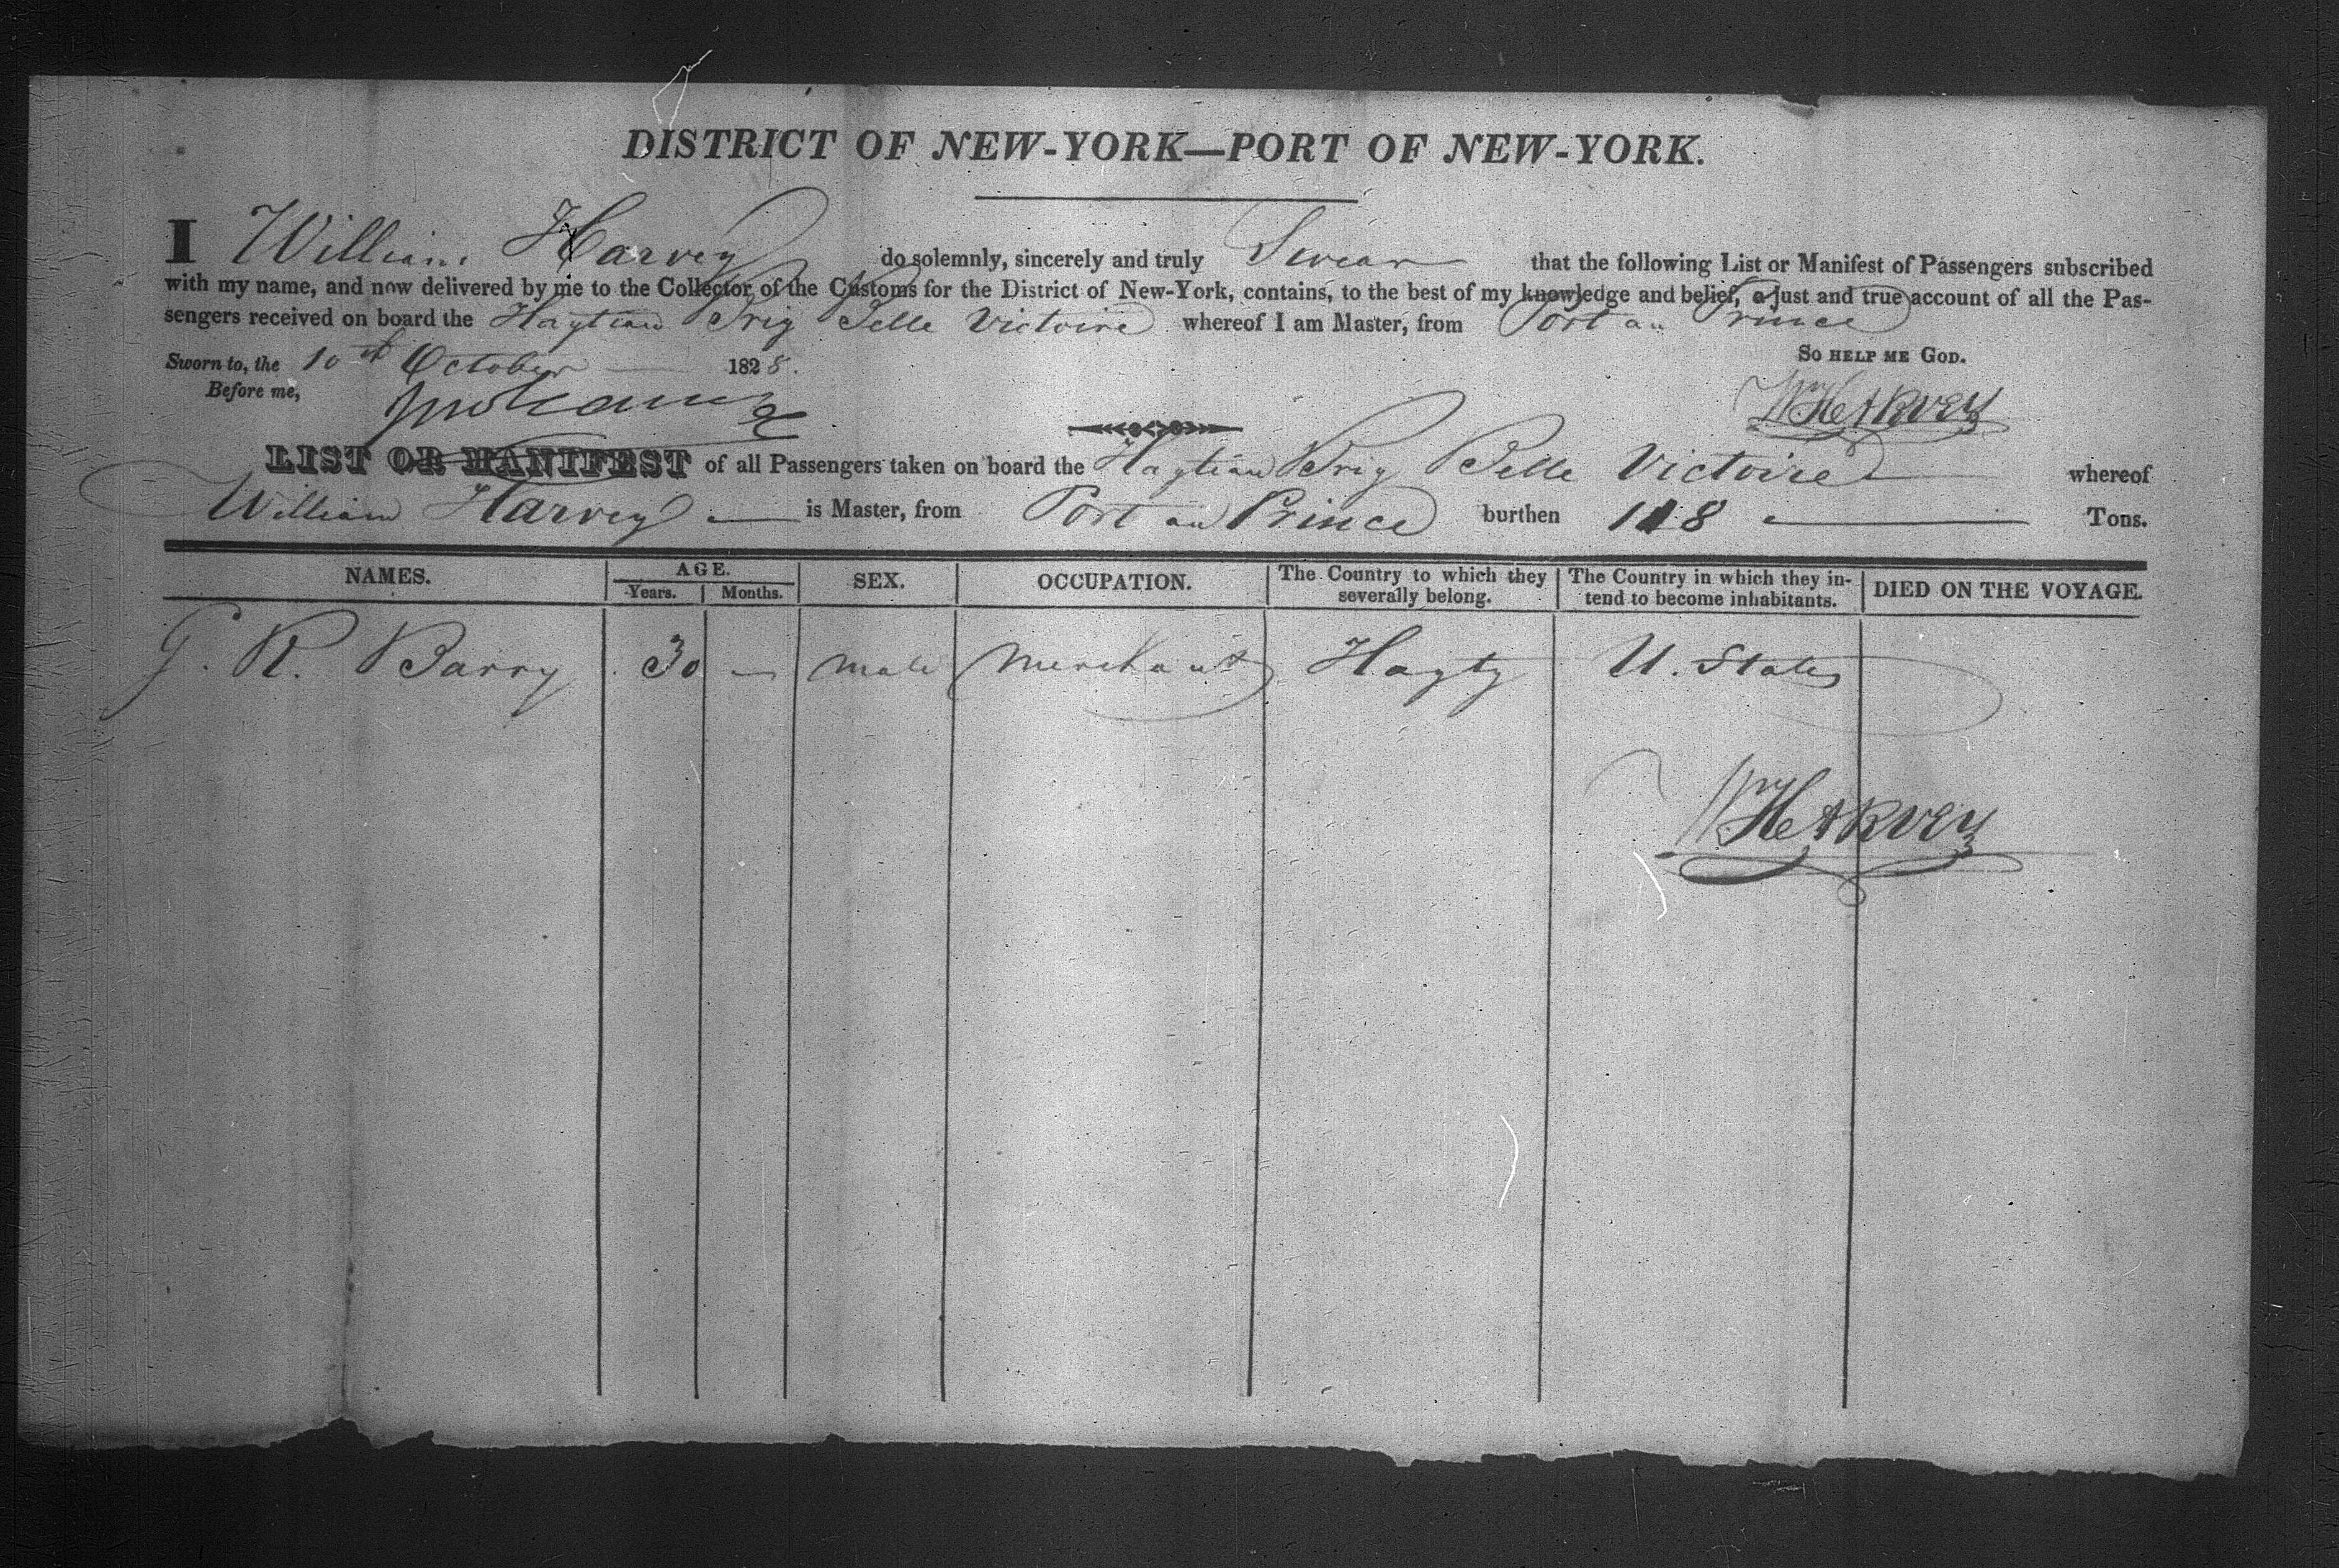 DISTRICT OF NEW-YORK—PORT OF NEW-YORK.
I William Harvey do solemnly, sincerely and truly Swear that the following List or Manifest of Passengers subscribed
with my name, and now delivered by me to the Collector of the Customs for the District of New-York, contains, to the best of my knowledge and belief, a just and true account of all the Pas-
sengers received on board the Haytian Brig Belle Victoire whereof I am Master, from Port au Prince
Sworn to, the 10th October 1828.
SO HELP ME GOD.
Before me,
Wm Harvey
LIST OR MANIFEST of all Passengers taken on board the Haytian Brig Belle Victoire whereof
William Harvey is Master, from Port au Prince burthen 118 Tons.
NAMES. AGE. Years. Months. SEX. OCCUPATION. The Country to which they severally belong. The Country in which they intend to become inhabitants. DIED ON THE VOYAGE.
G. R. Barry 30 — male Merchant Hayty U. States
Wm Harvey